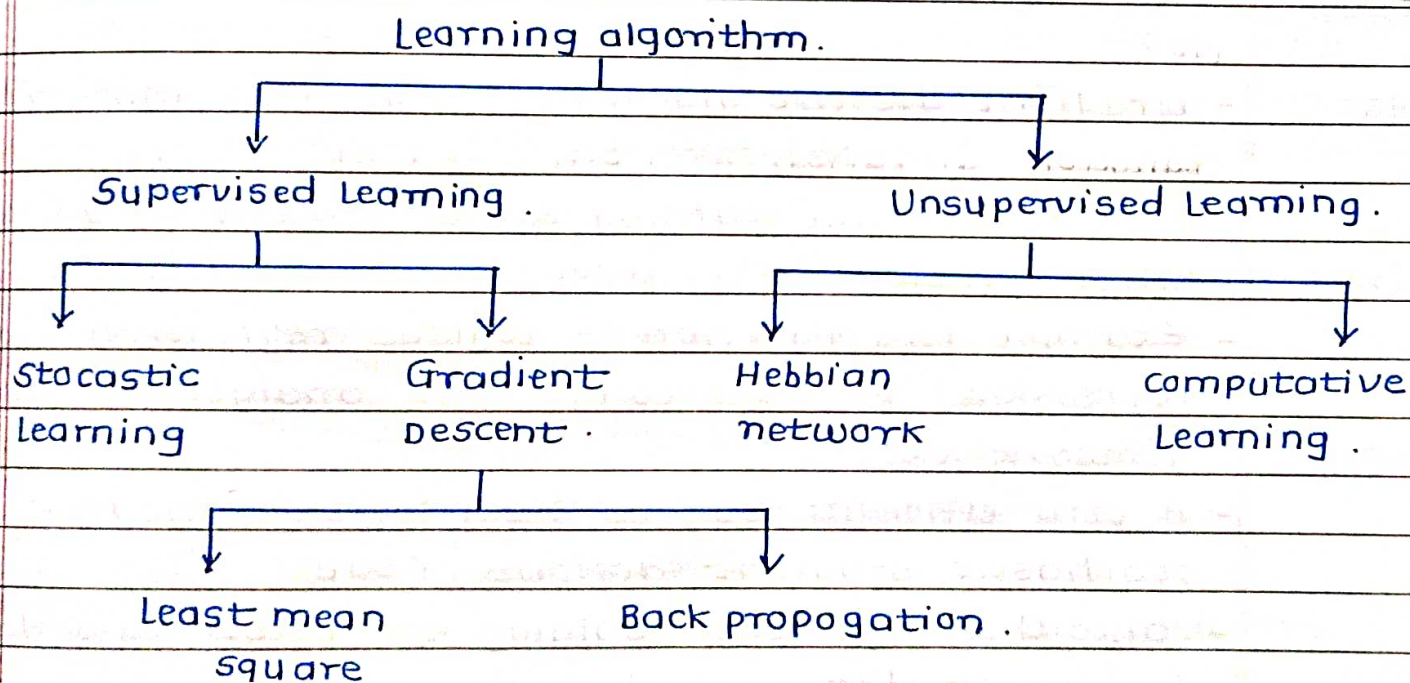 Learning algorithm.
Supervised Learning .
Unsupervised Learning .
Stocastic
Learning
Gradient
Descent .
Hebbian
network
computative
Learning .
Least mean
square
Back propogation .